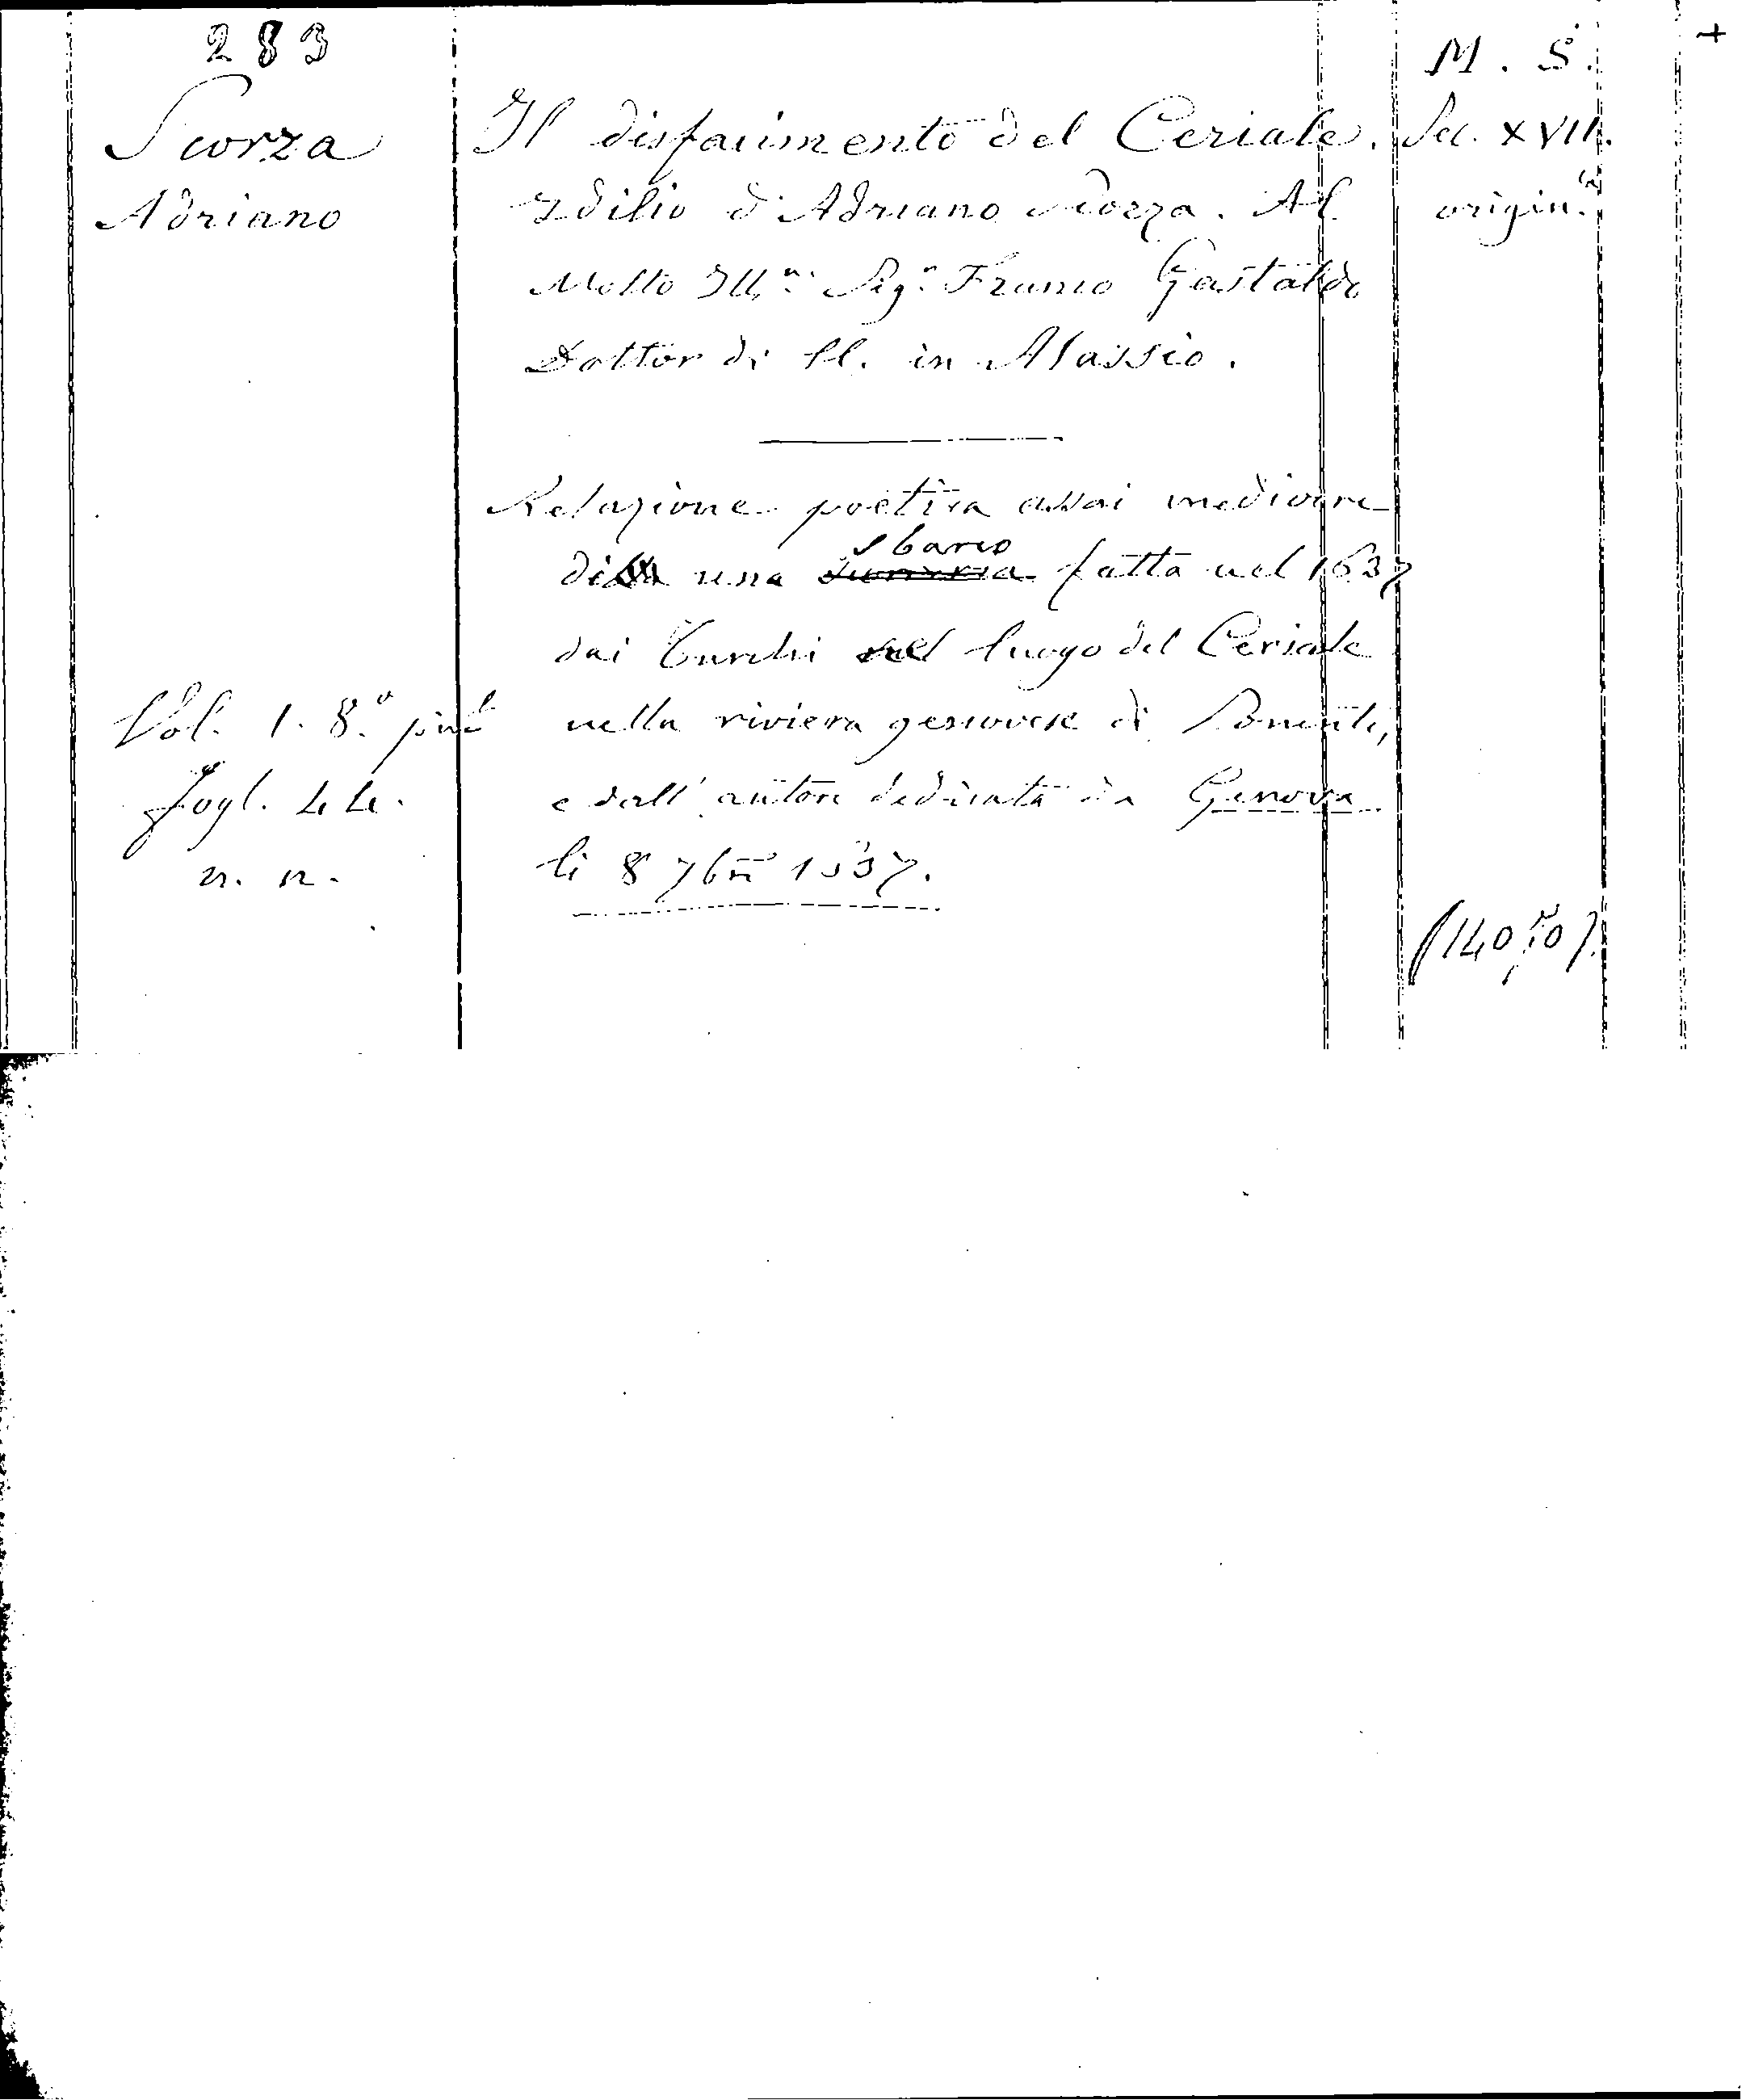 283
Scorza
Adriano
Vol. 1. 8.º picº
fogl. 44.
n. n.
Il disfacimento del Ceriale.
Idilio d'Adriano Scorza. Al
Molto Ill.re Sig.r Franco Gastaldo
Dottor di ll. in Alassio.
Relazione poetica assai mediocre
di una sbarco fatta nel 1637
dai Turchi nel luogo del Ceriale
nella riviera genovese di Ponente,
e dall'autore dedicata da Genova
li 8 7bre 1637.
M. S.
Sec. XVII.
origin.le
+